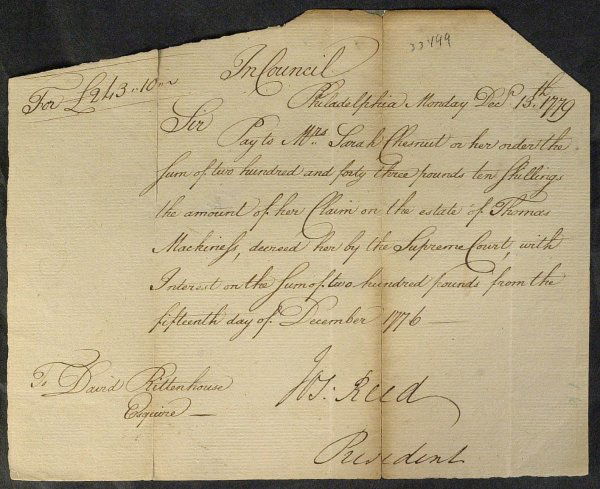 33499
In Council
For £243..10..~
Philadelphia Monday Decr. 13th. 1779
Sir
Pay to Mrs. Sarah Chesnut or her order the
Sum of two hundred and forty three pounds ten Shillings
the amount of her Claim on the estate of Thomas
Mackiness, decreed her by the Supreme Court, with
Interest on the Sum of two hundred pounds from the
fifteenth day of December 1776 —
To David Rittenhouse
Esquire —
Jos. Reed
President